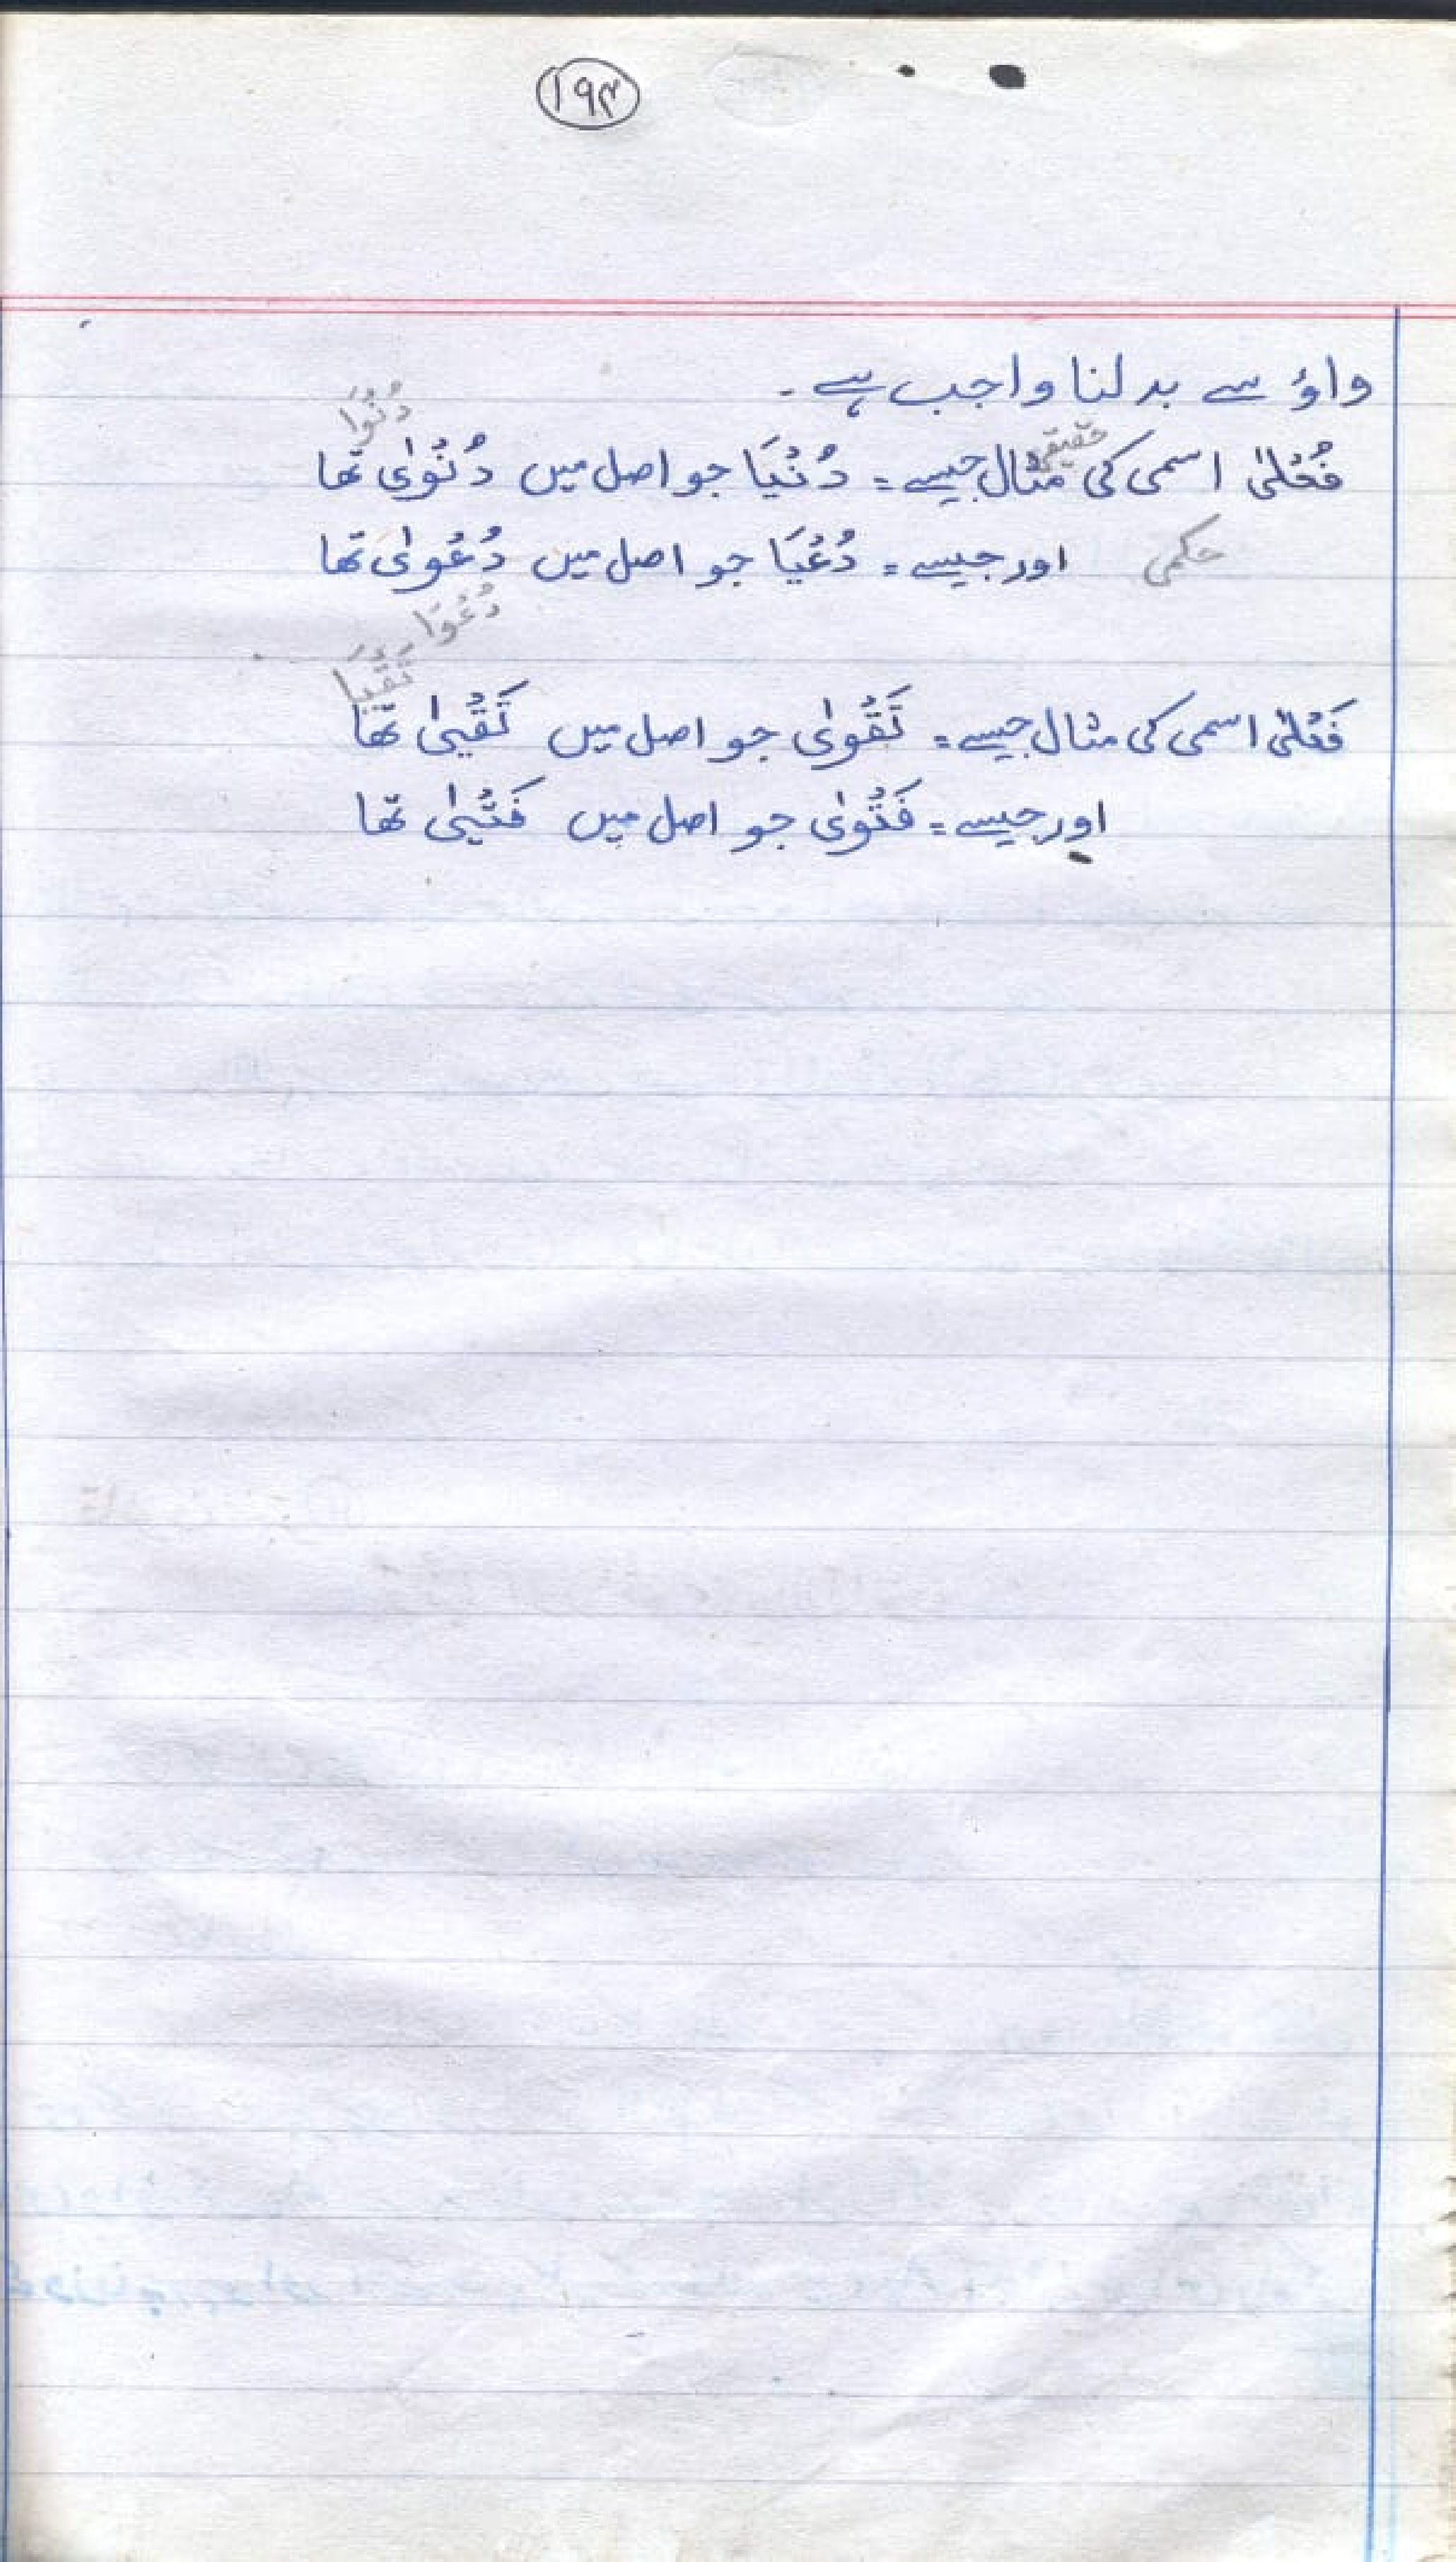 ۱۹۴
واؤ سے بدلنا واجب ہے۔
دُنْوَا
حقیقی
فُعْلٰی اسمی کی مثال جیسے = دُنْیَا جو اصل میں دُنْوٰی تھا
حکمی اور جیسے = دُعْیَا جو اصل میں دُعْوٰی تھا
دُعْوَا
تَقْیَا
فَعْلٰی اسمی کی مثال جیسے = تَقْوٰی جو اصل میں تَقْیٰی تھا
اور جیسے = فَتْوٰی جو اصل میں فَتْیٰی تھا